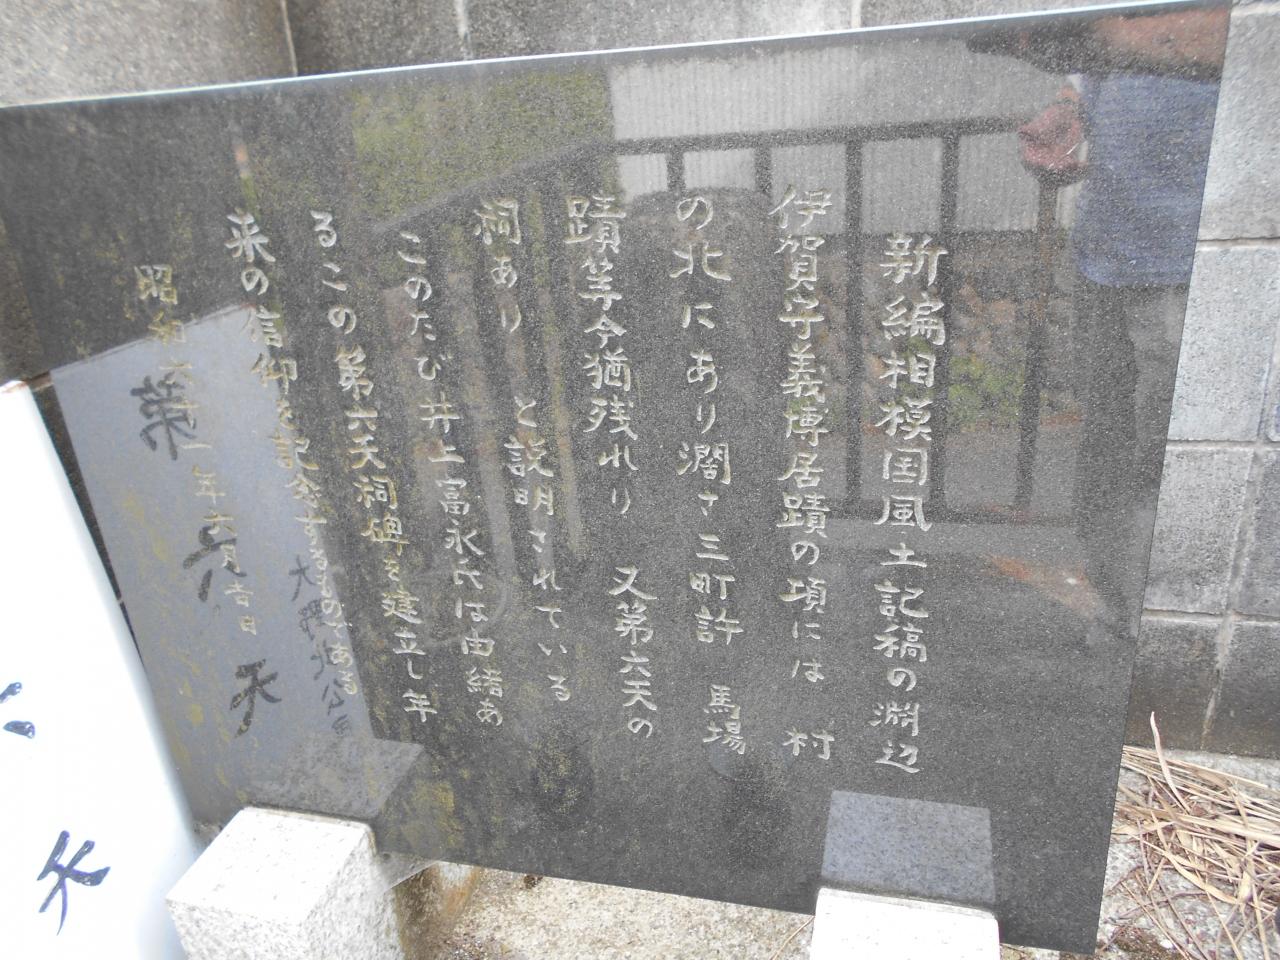 新編相模国風土記稿の淵辺
伊賀守義博居蹟の項には 村
の北にあり濶さ三町許 馬場
蹟等今猶残れり 又第六天の
祠あり と説明されている
このたび井上富永氏は由緒あ
るこの第六天祠碑を建立し年
来の信仰を記念するものである
昭和 年六月吉日
第六天
天